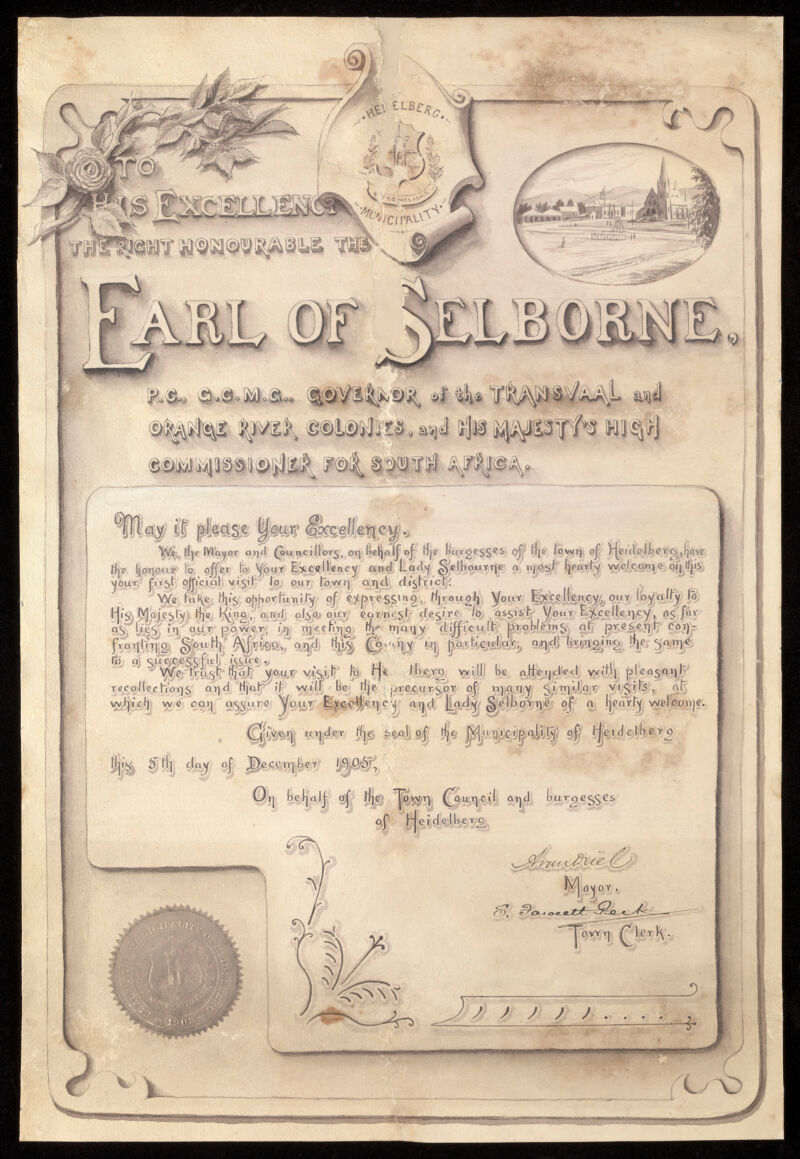 HEIDELBERG
MUNICIPALITY
TO
HIS EXCELLENCY
THE RIGHT HONOURABLE THE
EARL OF SELBORNE,
P.C., G.C.M.G., GOVERNOR of the TRANSVAAL and
ORANGE RIVER COLONIES, and HIS MAJESTY'S HIGH
COMMISSIONER FOR SOUTH AFRICA.
May it please Your Excellency.
We, the Mayor and Councillors, on behalf of the burgesses of the town of Heidelberg, have
the honour to offer to Your Excellency and Lady Selbourne a most hearty welcome on this
your first official visit to our town and district.
We take this opportunity of expressing, through Your Excellency, our loyalty to
His Majesty the King, and also our earnest desire to assist Your Excellency, as far
as lies in our power, in meeting the many difficult problems at present con-
fronting South Africa, and this Colony in particular, and bringing the same
to a successful issue.
We trust that your visit to He lberg will be attended with pleasant
recollections and that it will be the precursor of many similar visits, at
which we can assure Your Excellency and Lady Selborne of a hearty welcome.
Given under the seal of the Municipality of Heidelberg
this 5th day of December 1905,
On behalf of the Town Council and burgesses
of Heidelberg
Mayor.
E. Fawcett Peck
Town Clerk.
1903